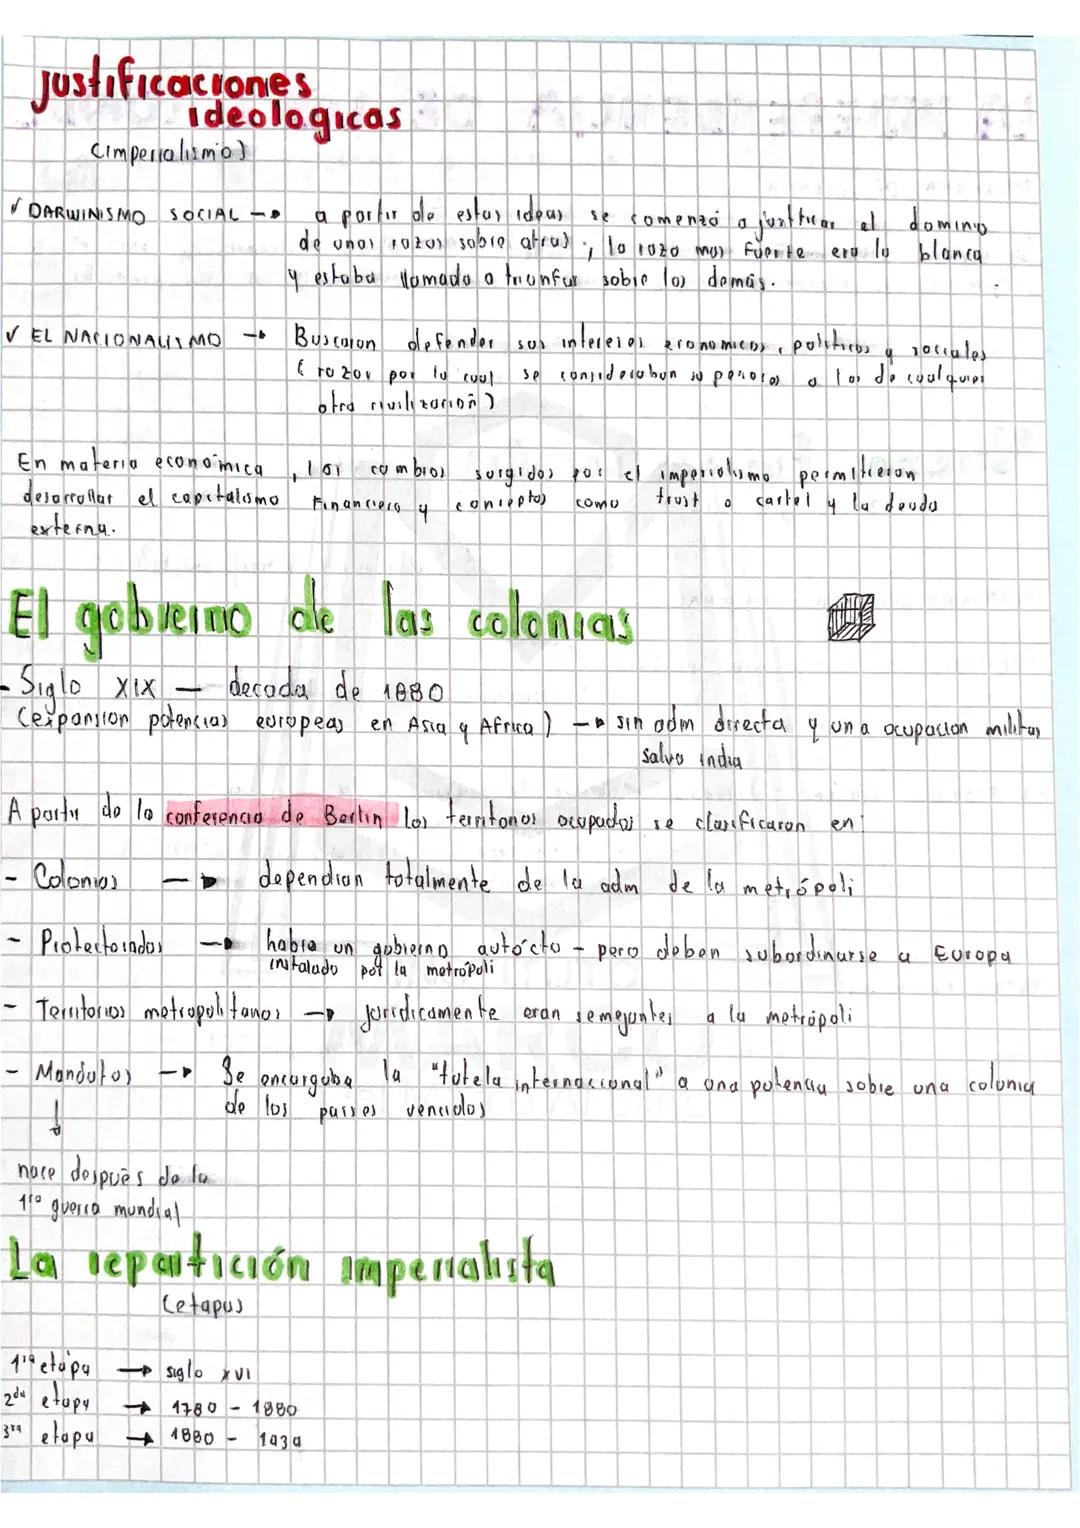 Justificaciones
ideologicas
(imperialismo)
✓ DARWINISMO SOCIAL → a partir de estas ideas se comenzó a justificar el dominio
de unas razas sobre otras; la raza mas fuerte era la blanca
y estaba llamada a triunfar sobre los demás.
✓ EL NACIONALISMO → Buscaron defender sus intereses economicos, politicos y sociales
(razon por lo cual se consideraban superiores a los de cualquier
otra civilización)
En materia económica, los cambios surgidos por el imperialismo permitieron
desarrollar el capitalismo financiero y conceptos como trust o cartel y la deuda
externa.
El gobierno de las colonias
- Siglo XIX — decada de 1880
(expansion potencias europeas en Asia y Africa) → sin adm directa y una ocupacion militar
salvo india
A partir de la conferencia de Berlin los territorios ocupados se clasificaron en:
- Colonias → dependian totalmente de la adm de la metrópoli
- Protectorados → habia un gobierno autócto - pero deben subordinarse a Europa
instalado por la metrópoli
- Territorios metropolitanos → juridicamente eran semejantes a la metrópoli
- Mandatos → Se encargaba la "tutela internacional" a una potencia sobre una colonia
de los paises vencidos
↓
nace después de la
1ra guerra mundial
La repartición imperialista
(etapas)
1ra etapa → siglo XVI
2da etapa → 1780 - 1880
3ra etapa → 1880 - 1939